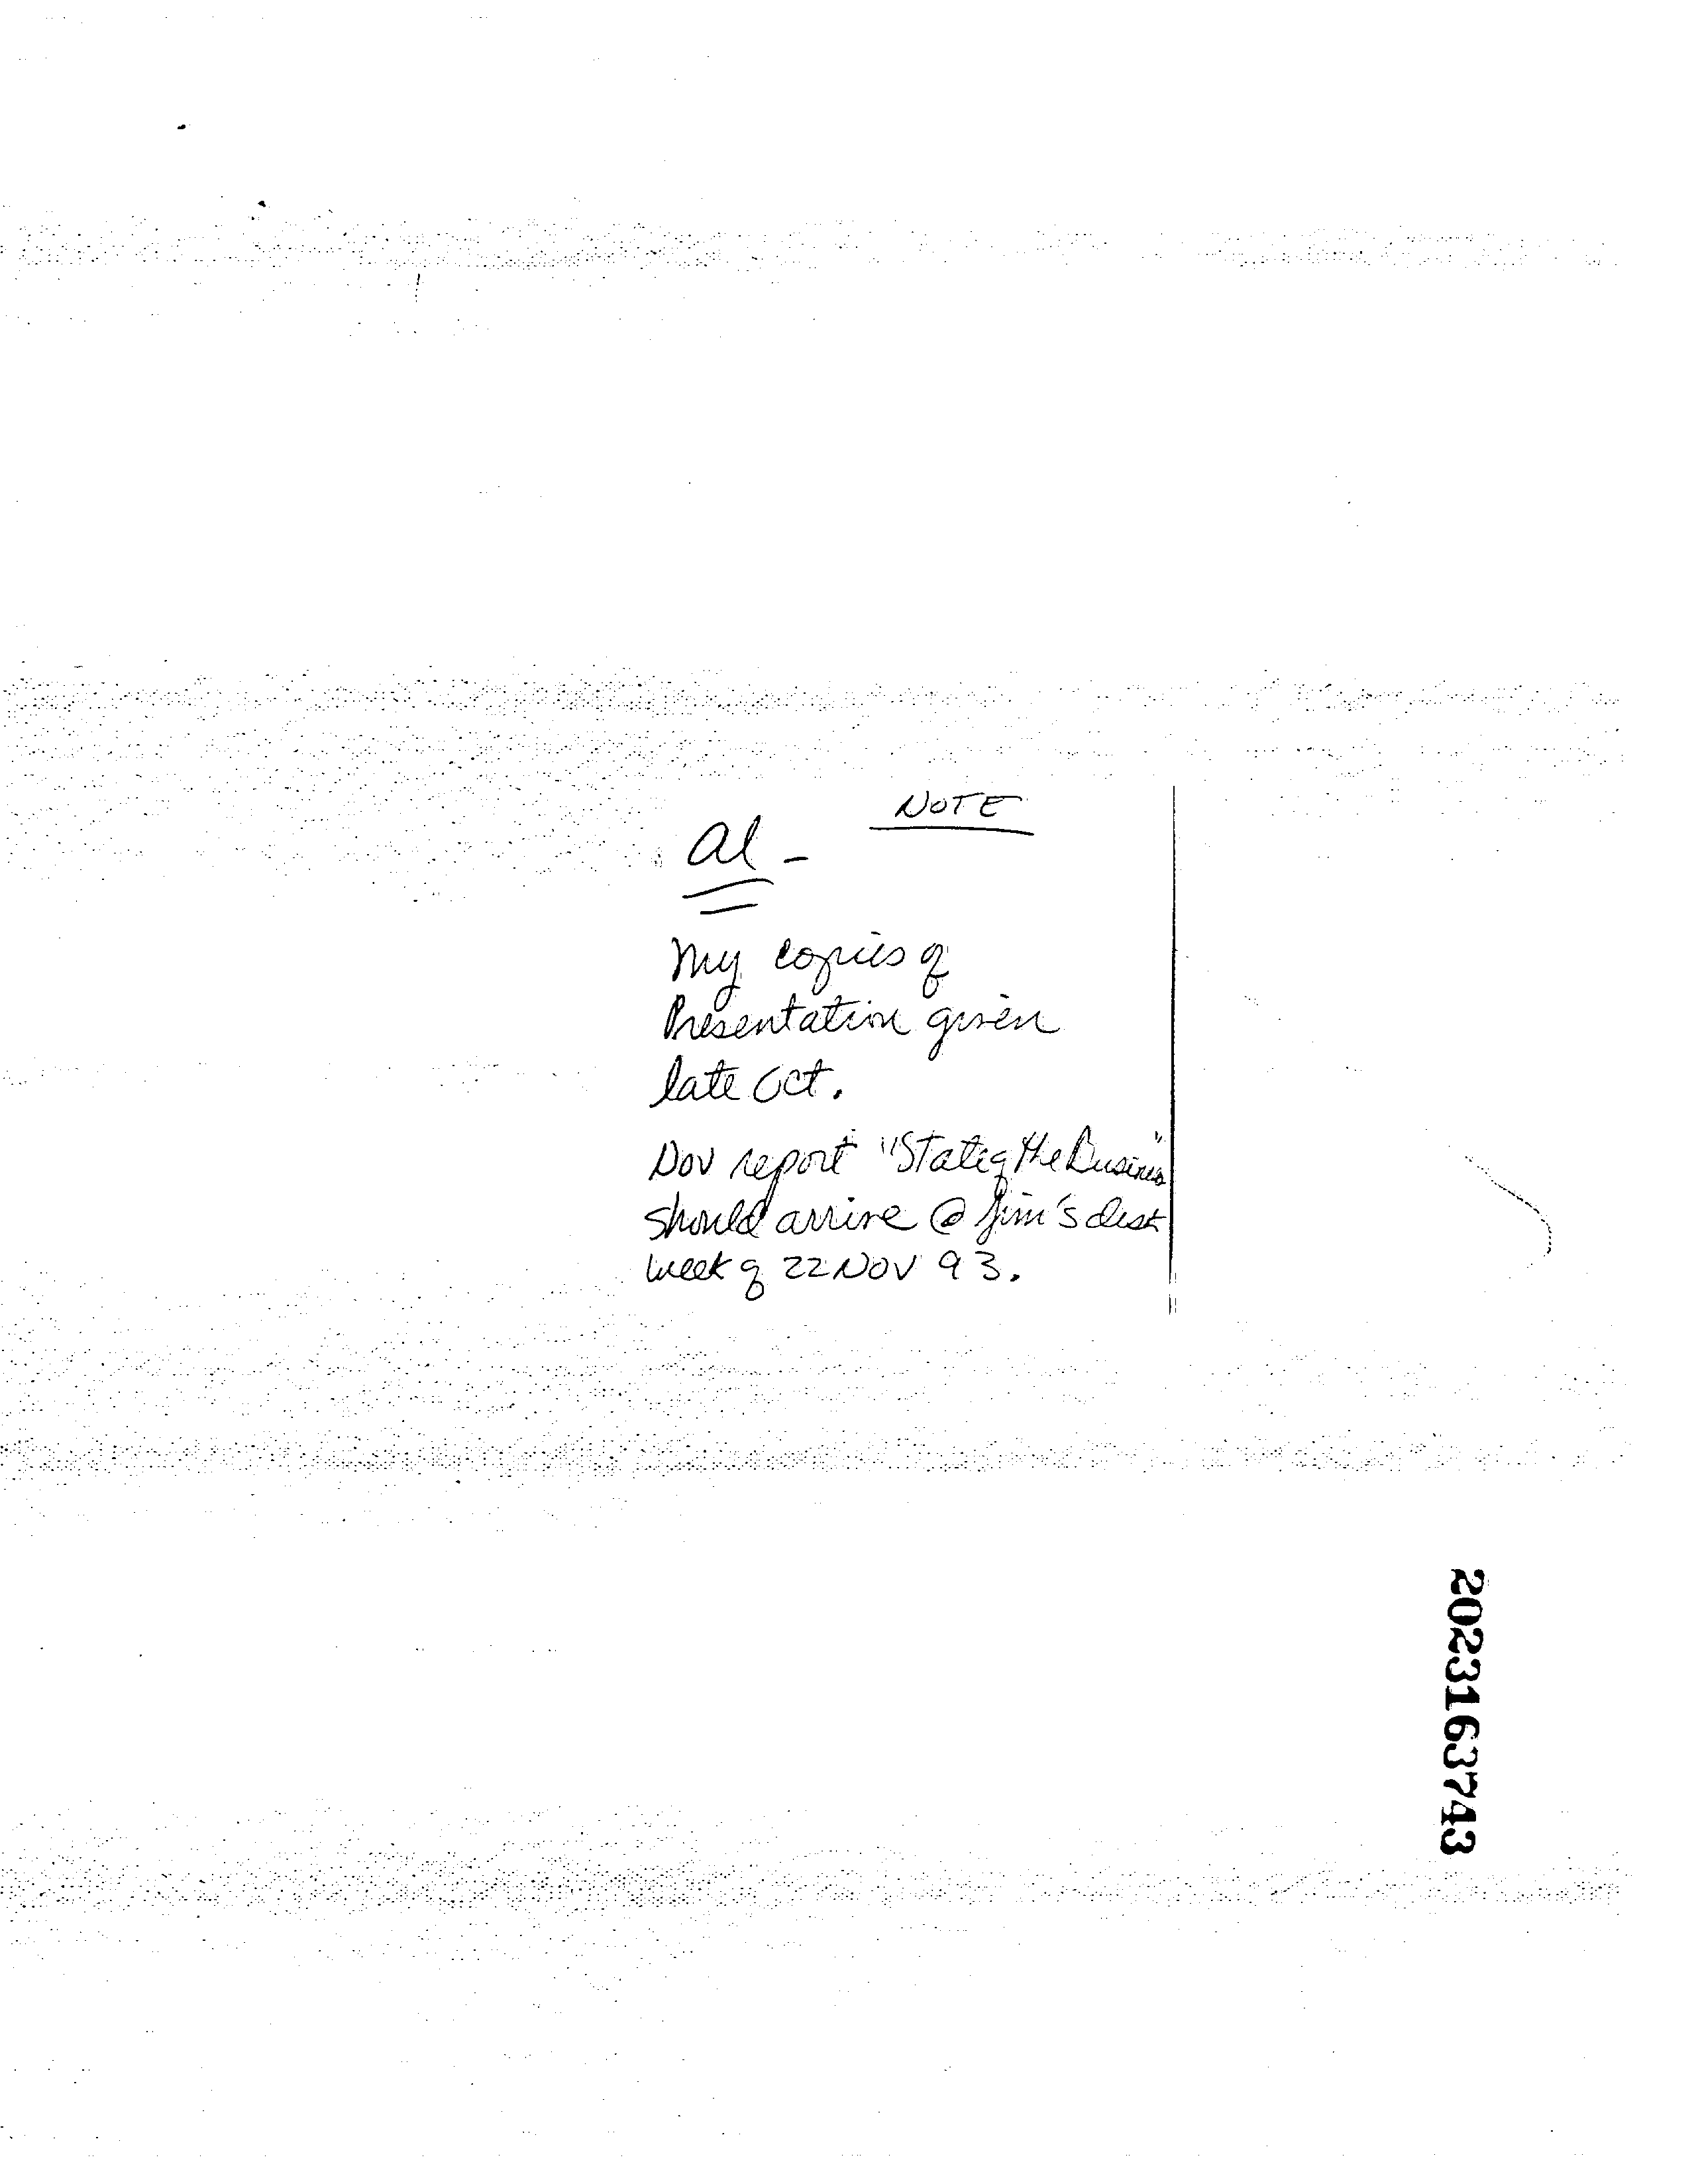 NOTE
Al -
My copies of
Presentation given
late Oct.
Nov report "State of the Business"
should arrive @ Jim's desk
week of 22 NOV 93.
2023163743